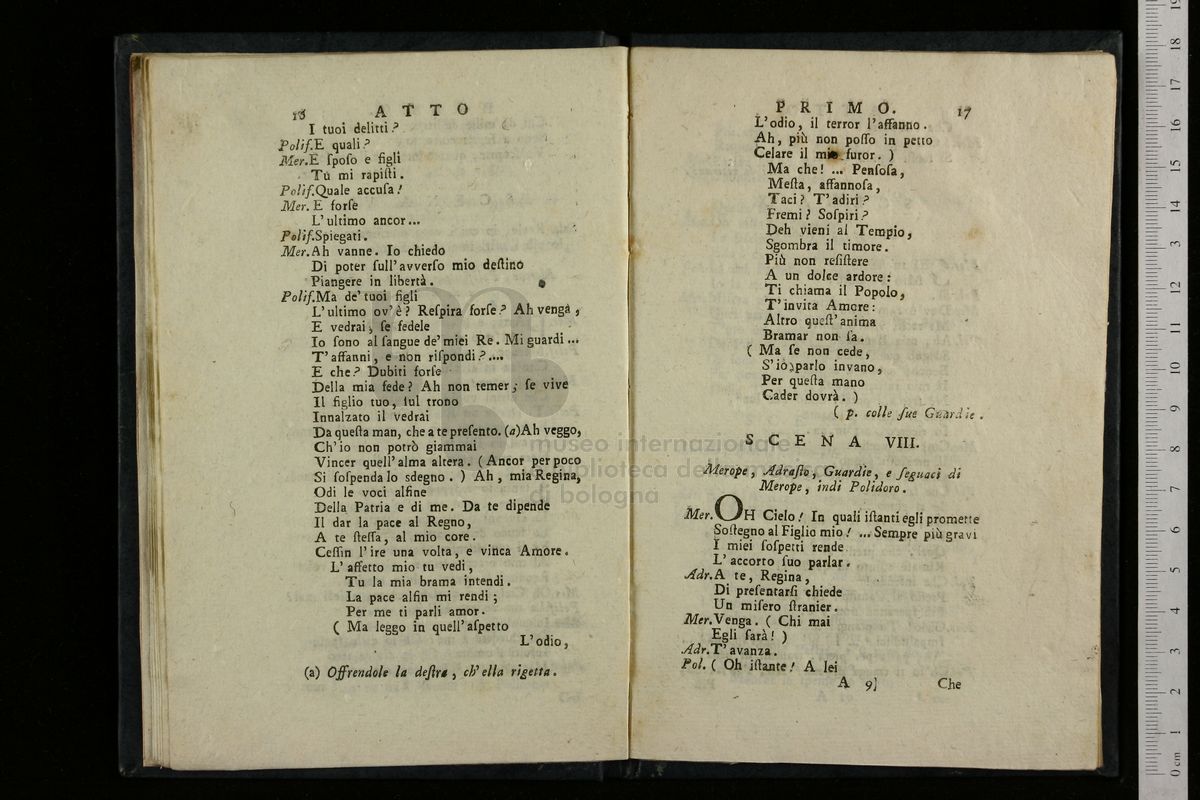 16 ATTO
I tuoi delitti?
Polif. E quali?
Mer. E ſpoſo e figli
Tu mi rapiſti.
Polif. Quale accuſa!
Mer. E forſe
L'ultimo ancor...
Polif. Spiegati.
Mer. Ah vanne. Io chiedo
Di poter ſull'avverſo mio deſtino
Piangere in libertà.
Polif. Ma de' tuoi figli
L'ultimo ov'è? Reſpira forſe? Ah venga,
E vedrai, ſe fedele
Io ſono al ſangue de' miei Re. Mi guardi...
T'affanni, e non riſpondi?....
E che? Dubiti forſe
Della mia fede? Ah non temer; ſe vive
Il figlio tuo, ſul trono
Innalzato il vedrai
Da queſta man, che a te preſento. (a) Ah veggo,
Ch'io non potrò giammai
Vincer quell'alma altera. (Ancor per poco
Si ſoſpenda lo sdegno.) Ah, mia Regina,
Odi le voci alfine
Della Patria e di me. Da te dipende
Il dar la pace al Regno,
A te ſteſſa, al mio core.
Ceſſin l'ire una volta, e vinca Amore.
L'affetto mio tu vedi,
Tu la mia brama intendi.
La pace alfin mi rendi;
Per me ti parli amor.
( Ma leggo in quell'aſpetto
L'odio,
(a) Offrendole la deſtra, ch'ella rigetta.
PRIMO. 17
L'odio, il terror l'affanno.
Ah, più non poſſo in petto
Celare il mio furor. )
Ma che! ... Penſoſa,
Meſta, affannoſa,
Taci? T'adiri?
Fremi? Soſpiri?
Deh vieni al Tempio,
Sgombra il timore.
Più non reſiſtere
A un dolce ardore:
Ti chiama il Popolo,
T'invita Amore:
Altro queſt'anima
Bramar non ſa.
( Ma ſe non cede,
S'io parlo invano,
Per queſta mano
Cader dovrà. )
( p. colle ſue Guardie.
SCENA VIII.
Merope, Adraſto, Guardie, e ſeguaci di
Merope, indi Polidoro.
Mer. OH Cielo! In quali iſtanti egli promette
Soſtegno al Figlio mio! ... Sempre più gravi
I miei ſoſpetti rende
L'accorto ſuo parlar.
Adr. A te, Regina,
Di preſentarſi chiede
Un miſero ſtranier.
Mer. Venga. ( Chi mai
Egli ſarà! )
Adr. T'avanza.
Pol. ( Oh iſtante! A lei
A 9] Che
museo internazionale e
biblioteca della musica
di bologna